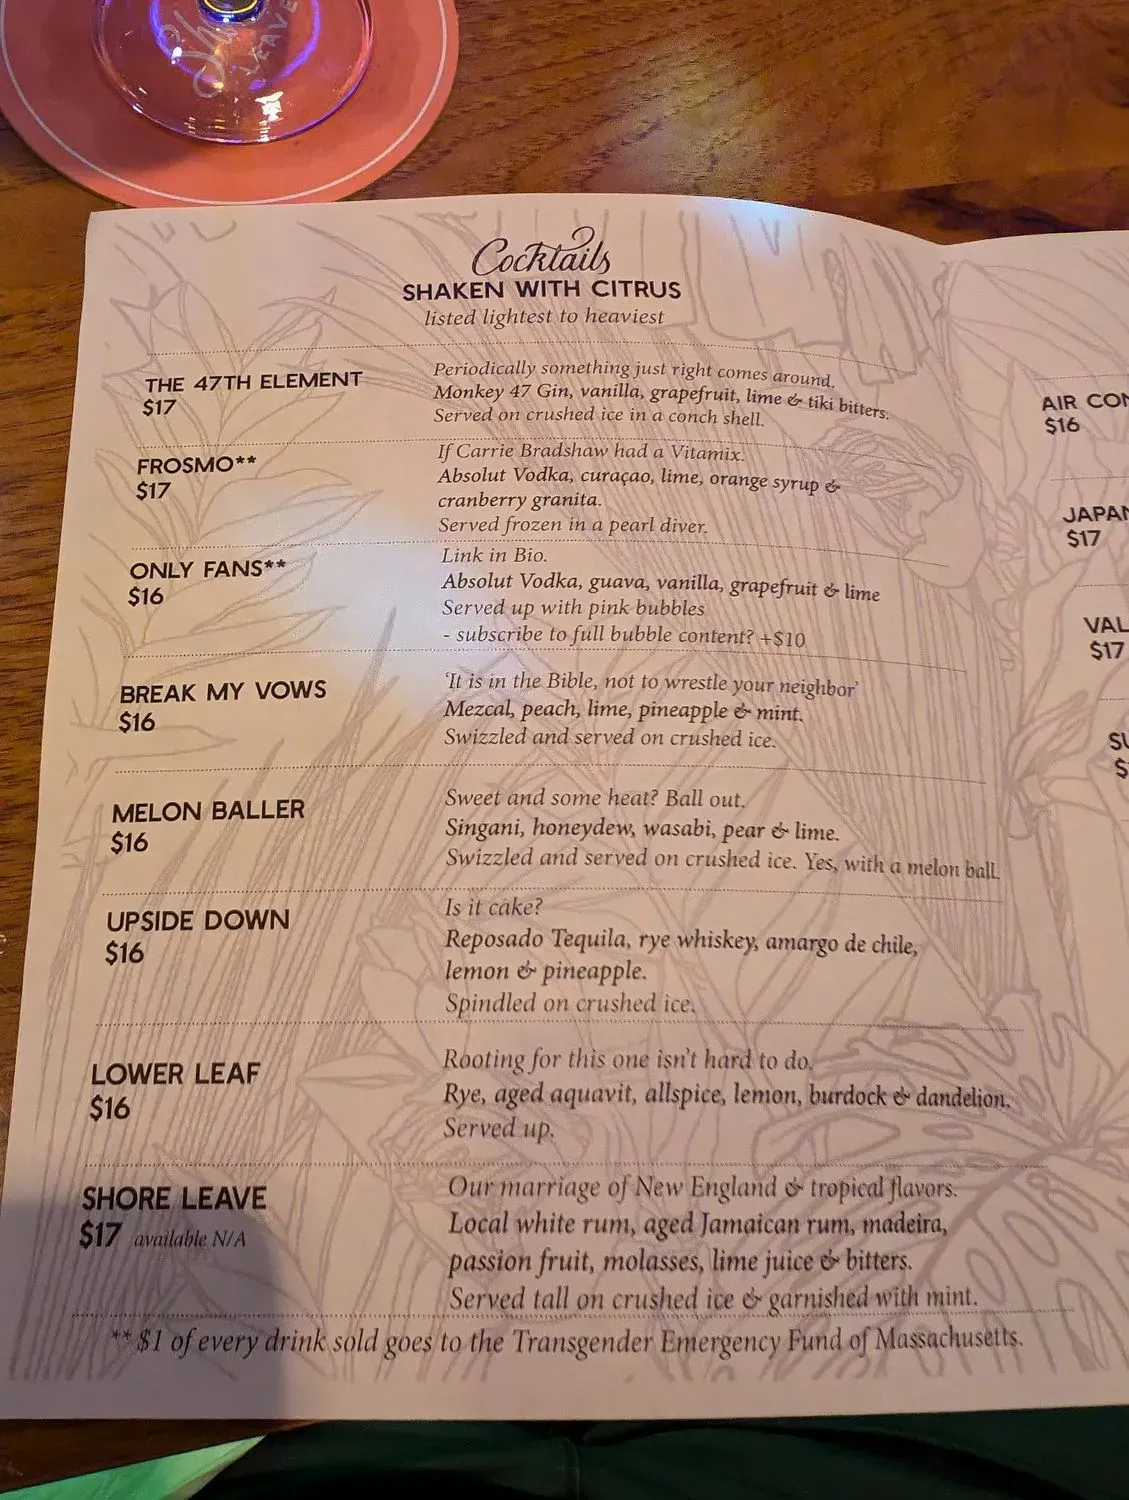 Cocktails
SHAKEN WITH CITRUS
listed lightest to heaviest
THE 47TH ELEMENT
$17
Periodically something just right comes around.
Monkey 47 Gin, vanilla, grapefruit, lime & tiki bitters.
Served on crushed ice in a conch shell.
FROSMO**
$17
If Carrie Bradshaw had a Vitamix.
Absolut Vodka, curaçao, lime, orange syrup &
cranberry granita.
Served frozen in a pearl diver.
ONLY FANS**
$16
Link in Bio.
Absolut Vodka, guava, vanilla, grapefruit & lime
Served up with pink bubbles
- subscribe to full bubble content? +$10
BREAK MY VOWS
$16
'It is in the Bible, not to wrestle your neighbor'
Mezcal, peach, lime, pineapple & mint.
Swizzled and served on crushed ice.
MELON BALLER
$16
Sweet and some heat? Ball out.
Singani, honeydew, wasabi, pear & lime.
Swizzled and served on crushed ice. Yes, with a melon ball.
UPSIDE DOWN
$16
Is it cake?
Reposado Tequila, rye whiskey, amargo de chile,
lemon & pineapple.
Spindled on crushed ice.
LOWER LEAF
$16
Rooting for this one isn't hard to do.
Rye, aged aquavit, allspice, lemon, burdock & dandelion.
Served up.
SHORE LEAVE
$17 available N/A
Our marriage of New England & tropical flavors.
Local white rum, aged Jamaican rum, madeira,
passion fruit, molasses, lime juice & bitters.
Served tall on crushed ice & garnished with mint.
** $1 of every drink sold goes to the Transgender Emergency Fund of Massachusetts.
AIR
$16
$17
$17